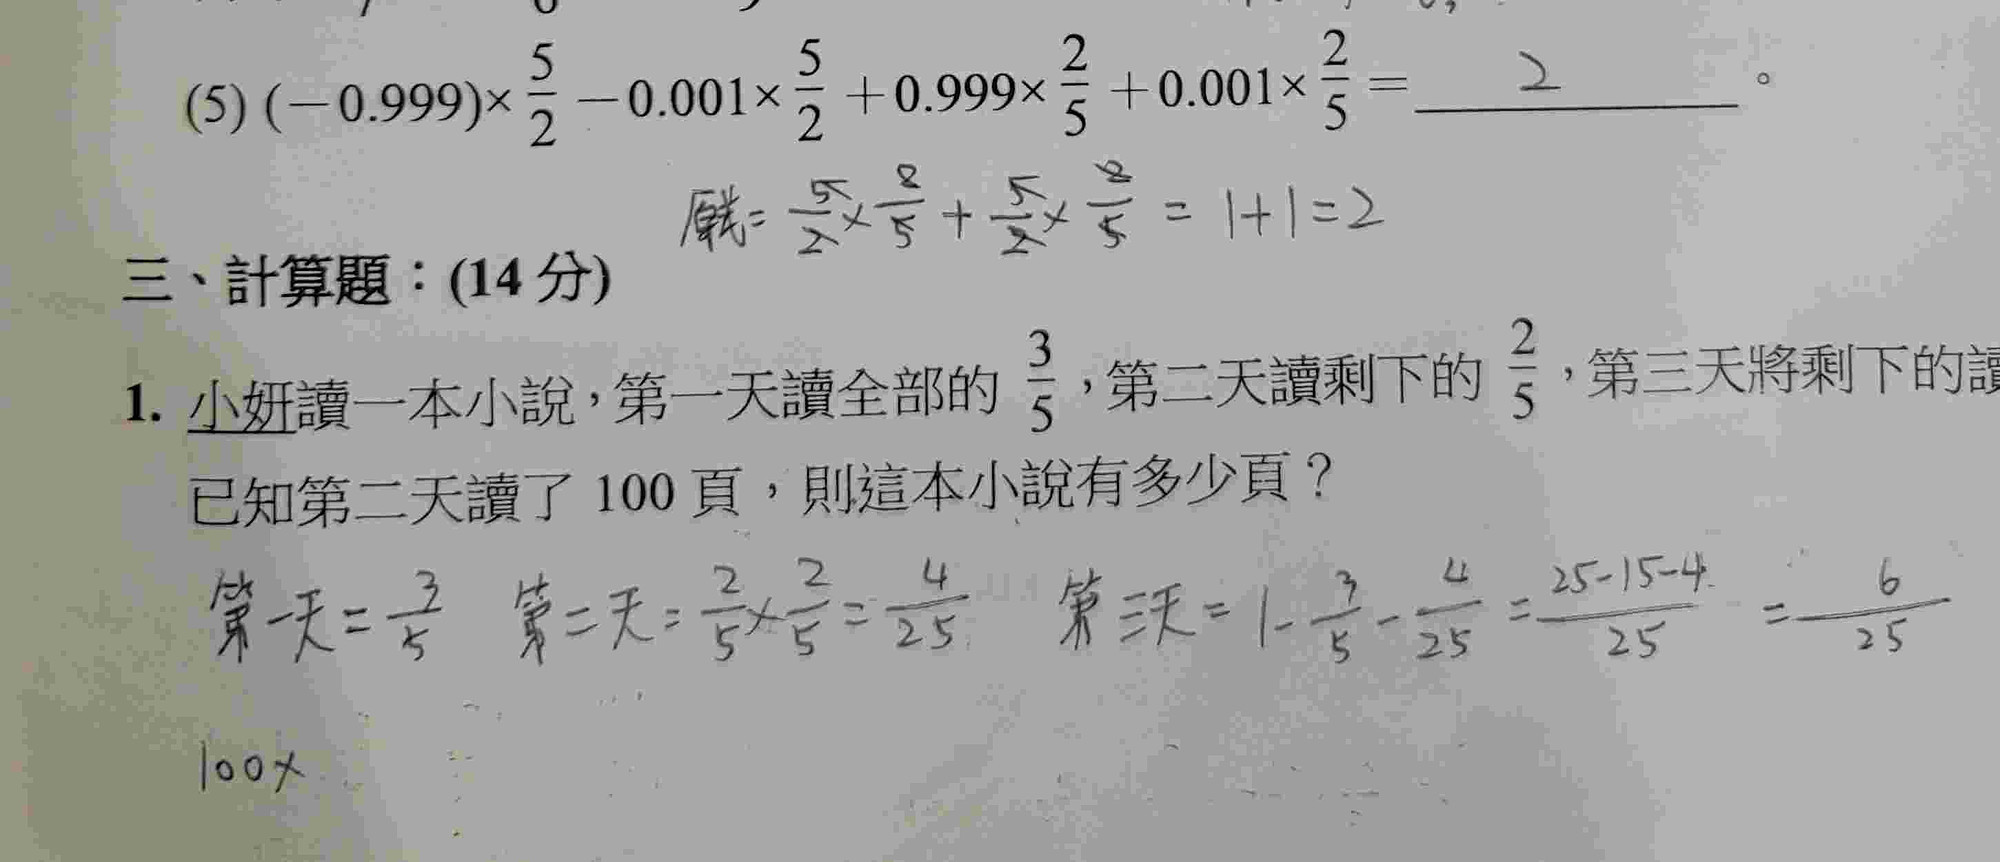 (5) (−0.999)× 5/2 −0.001× 5/2 +0.999× 2/5 +0.001× 2/5 = 2 。
原式= 5/2 × 2/5 + 5/2 × 2/5 = 1+1=2
三、計算題：(14 分)
1. 小妍讀一本小說，第一天讀全部的 3/5 ，第二天讀剩下的 2/5 ，第三天將剩下的讀
已知第二天讀了 100 頁，則這本小說有多少頁？
第一天= 3/5 第二天= 2/5 × 2/5 = 4/25 第三天= 1- 3/5 - 4/25 = 25-15-4/25 = 6/25
100×